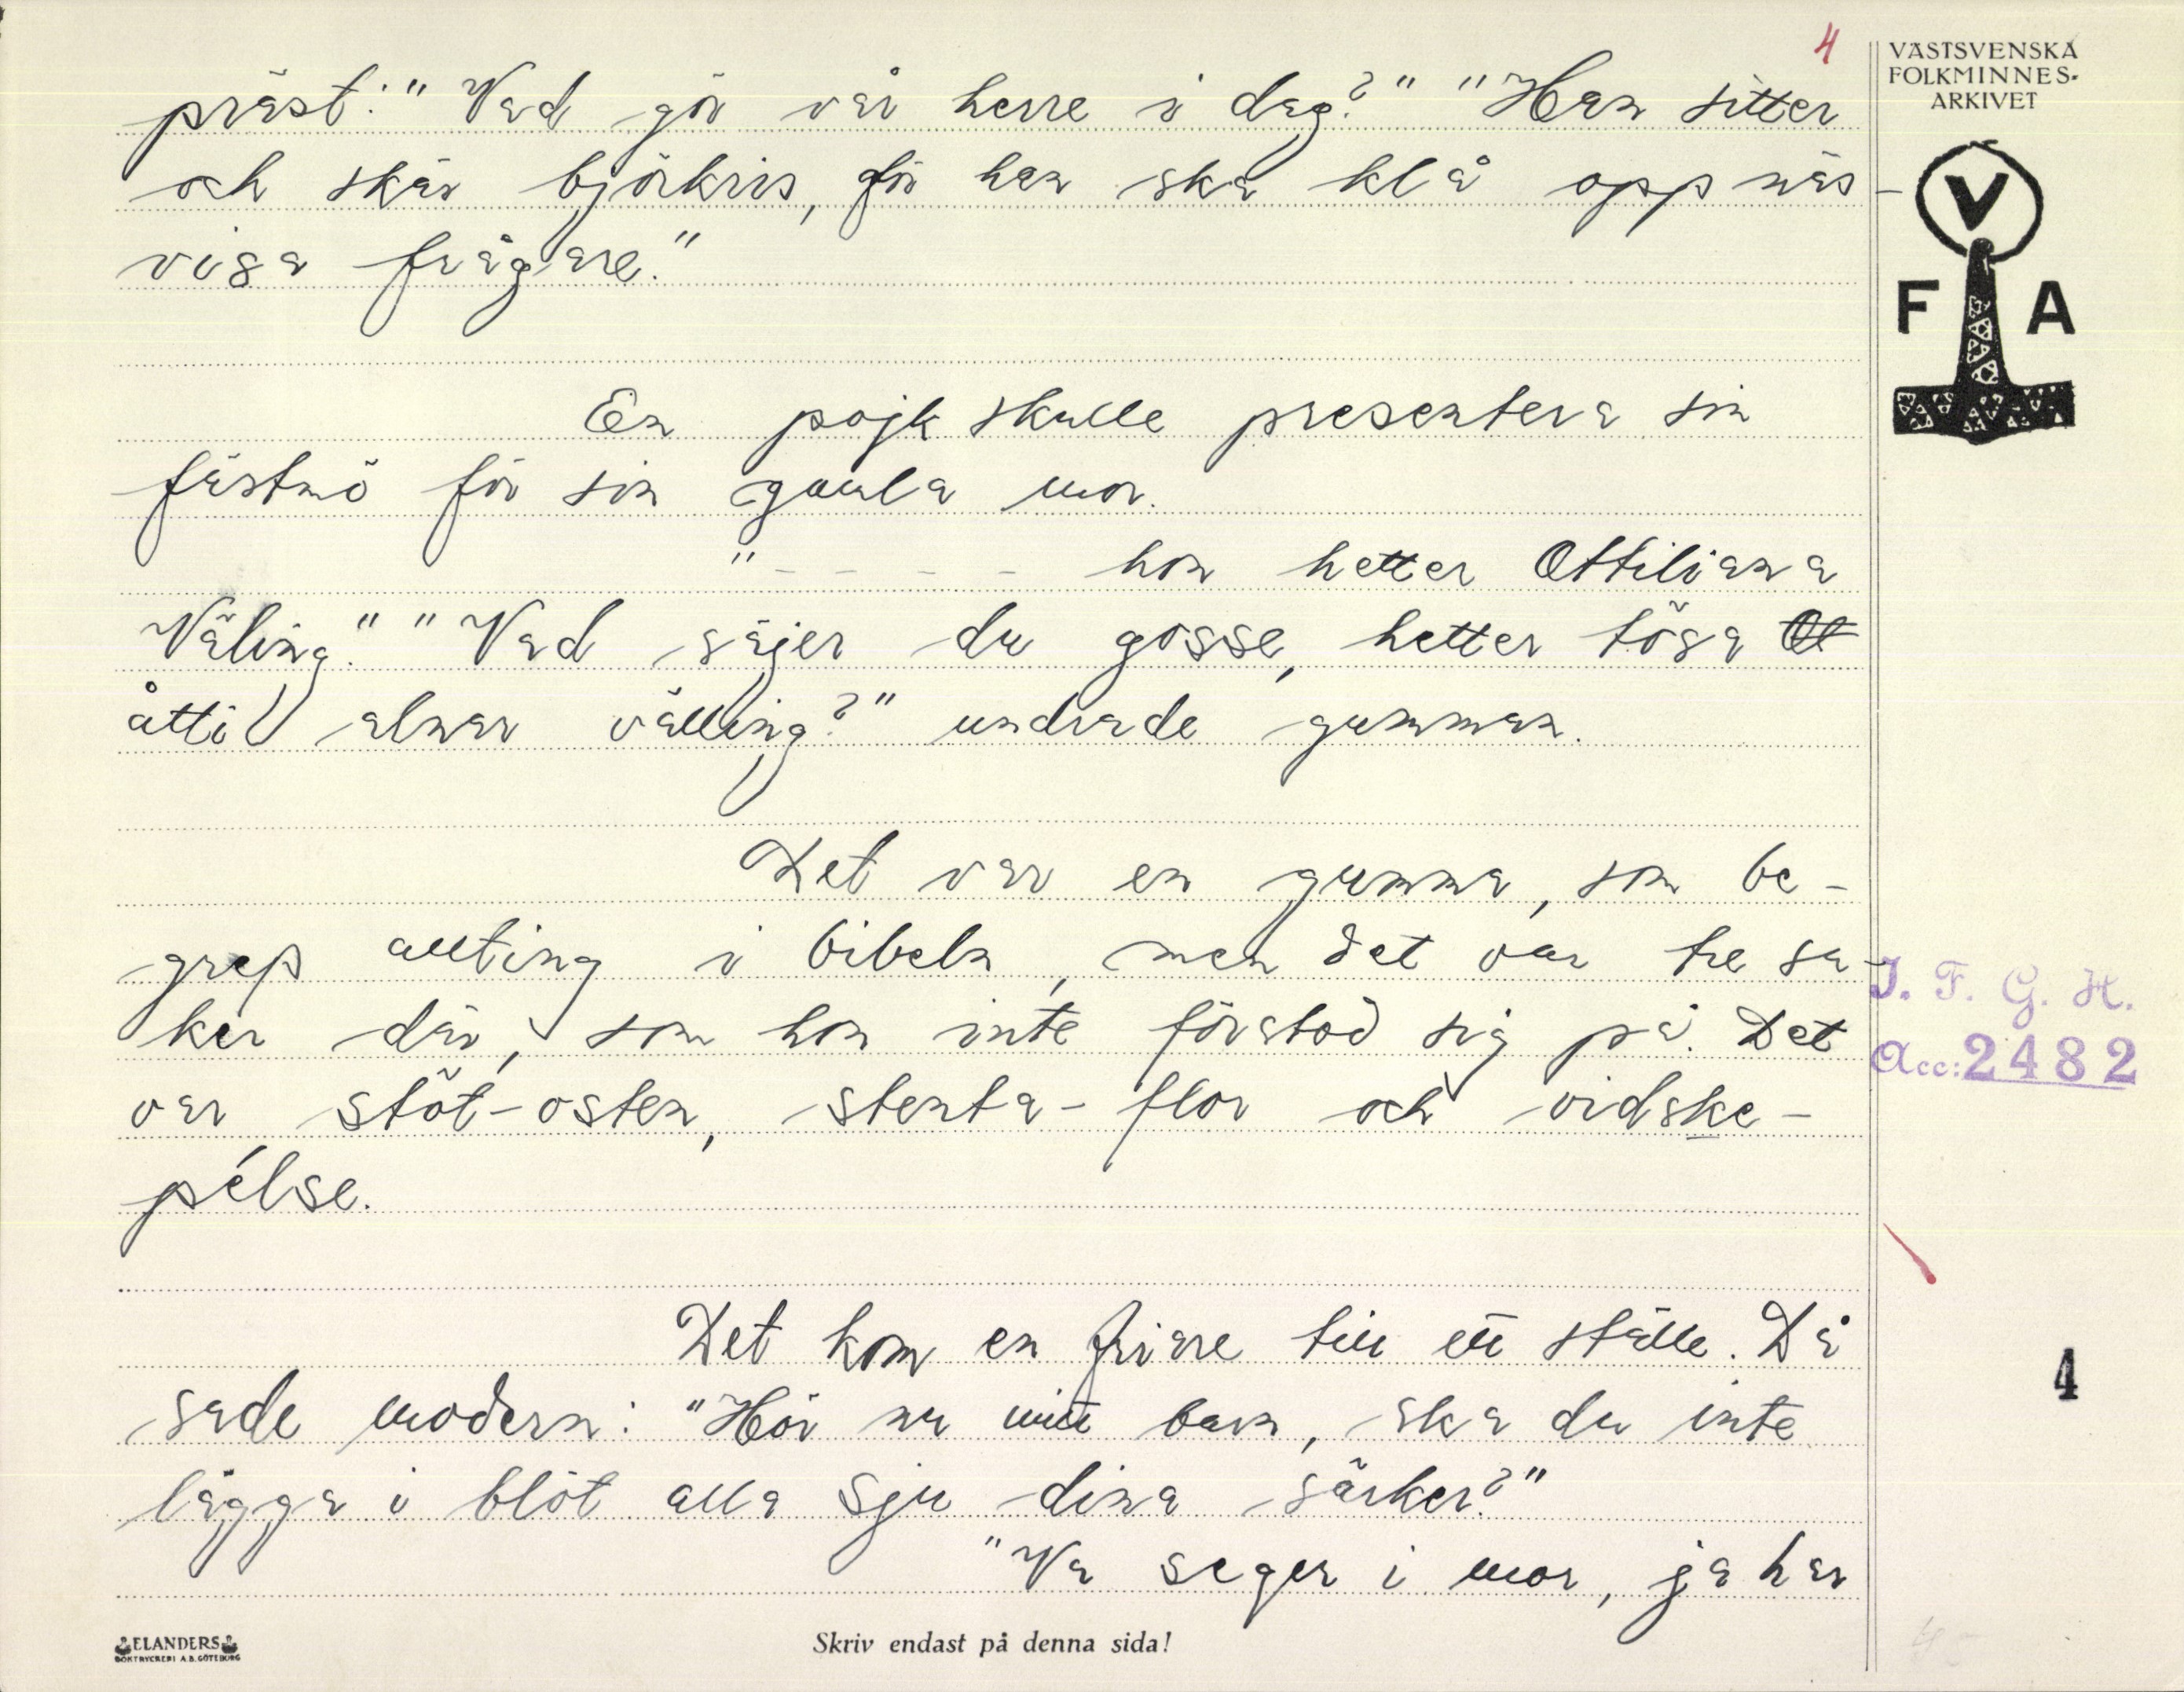 4
VÄSTSVENSKA
FOLKMINNES-
ARKIVET
V
F A
präst:" Vad gör vår herre i dag?" "Han sitter
och skär björkris, för han ska klå opp näs-
visa frågare."
En pojk skulle presentera sin
fästmö för sin gamla mor.
"- - - - hon hetter Ottiliana
Väling." "Vad säjer du gosse, hetter tösa Ot
åtti alnar välling?" undrade gumman.
Det var en gumma, som be-
grep allting i bibeln, men det var tre sa-
ker där, som hon inte förstod sig på. Det
var stöt-osten, stenta-flor och vidske-
pélse.
J. F. G. H.
Acc: 2482
Det kom en friare till ett ställe. Då
sade modern: "Hör nu mitt barn, ska du inte
lägga i blöt alla sju dina särker?"
"Va seger i mor, ja har
4
ELANDERS
BOKTRYCKERI A.B. GÖTEBORG
Skriv endast på denna sida!